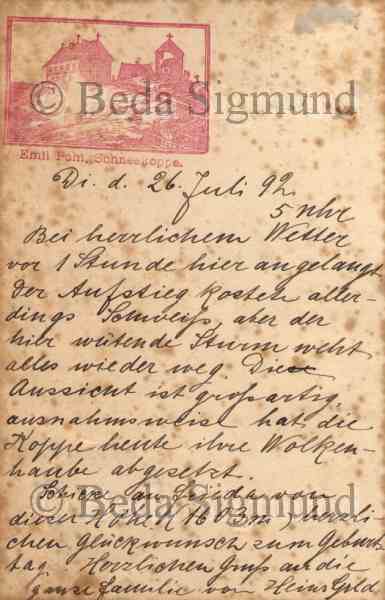 © Beda Sigmund
Emil Pohl, Schneekoppe.
Di. d. 26. Juli 92
5 Uhr
Bei herrlichem Wetter
vor 1 Stunde hier angelangt
Der Aufstieg kostete aller-
dings Schweiß, aber der
hier wütende Sturm weht
alles wieder weg. Die
Aussicht ist großartig,
ausnahmsweise hat die
Koppe heute ihre Wolken-
haube abgesetzt.
Schicke an Frieda von
© Beda Sigmund
dieser Höhe 1603m herzli-
chen Glückwunsch zum Geburts
tag. Herzlichen Gruß an die
ganze Familie von